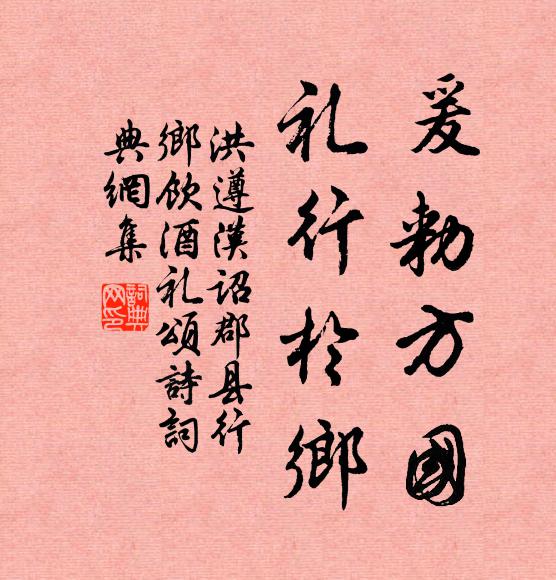 爰勅方國
礼行於鄉
洪遵漢詔郡县行
鄉飲酒礼頌詩詞
典網集
詞典
网印